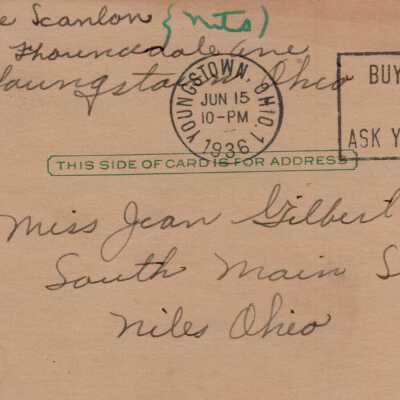 e Scanlon {Nits)
Thornedale Ave
Youngstown Ohio
YOUNGSTOWN, OHIO 1
JUN 15
10-PM
1936
BUY
ASK Y
THIS SIDE OF CARD IS FOR ADDRESS
Miss Jean Gilbert
South Main S
Niles Ohio